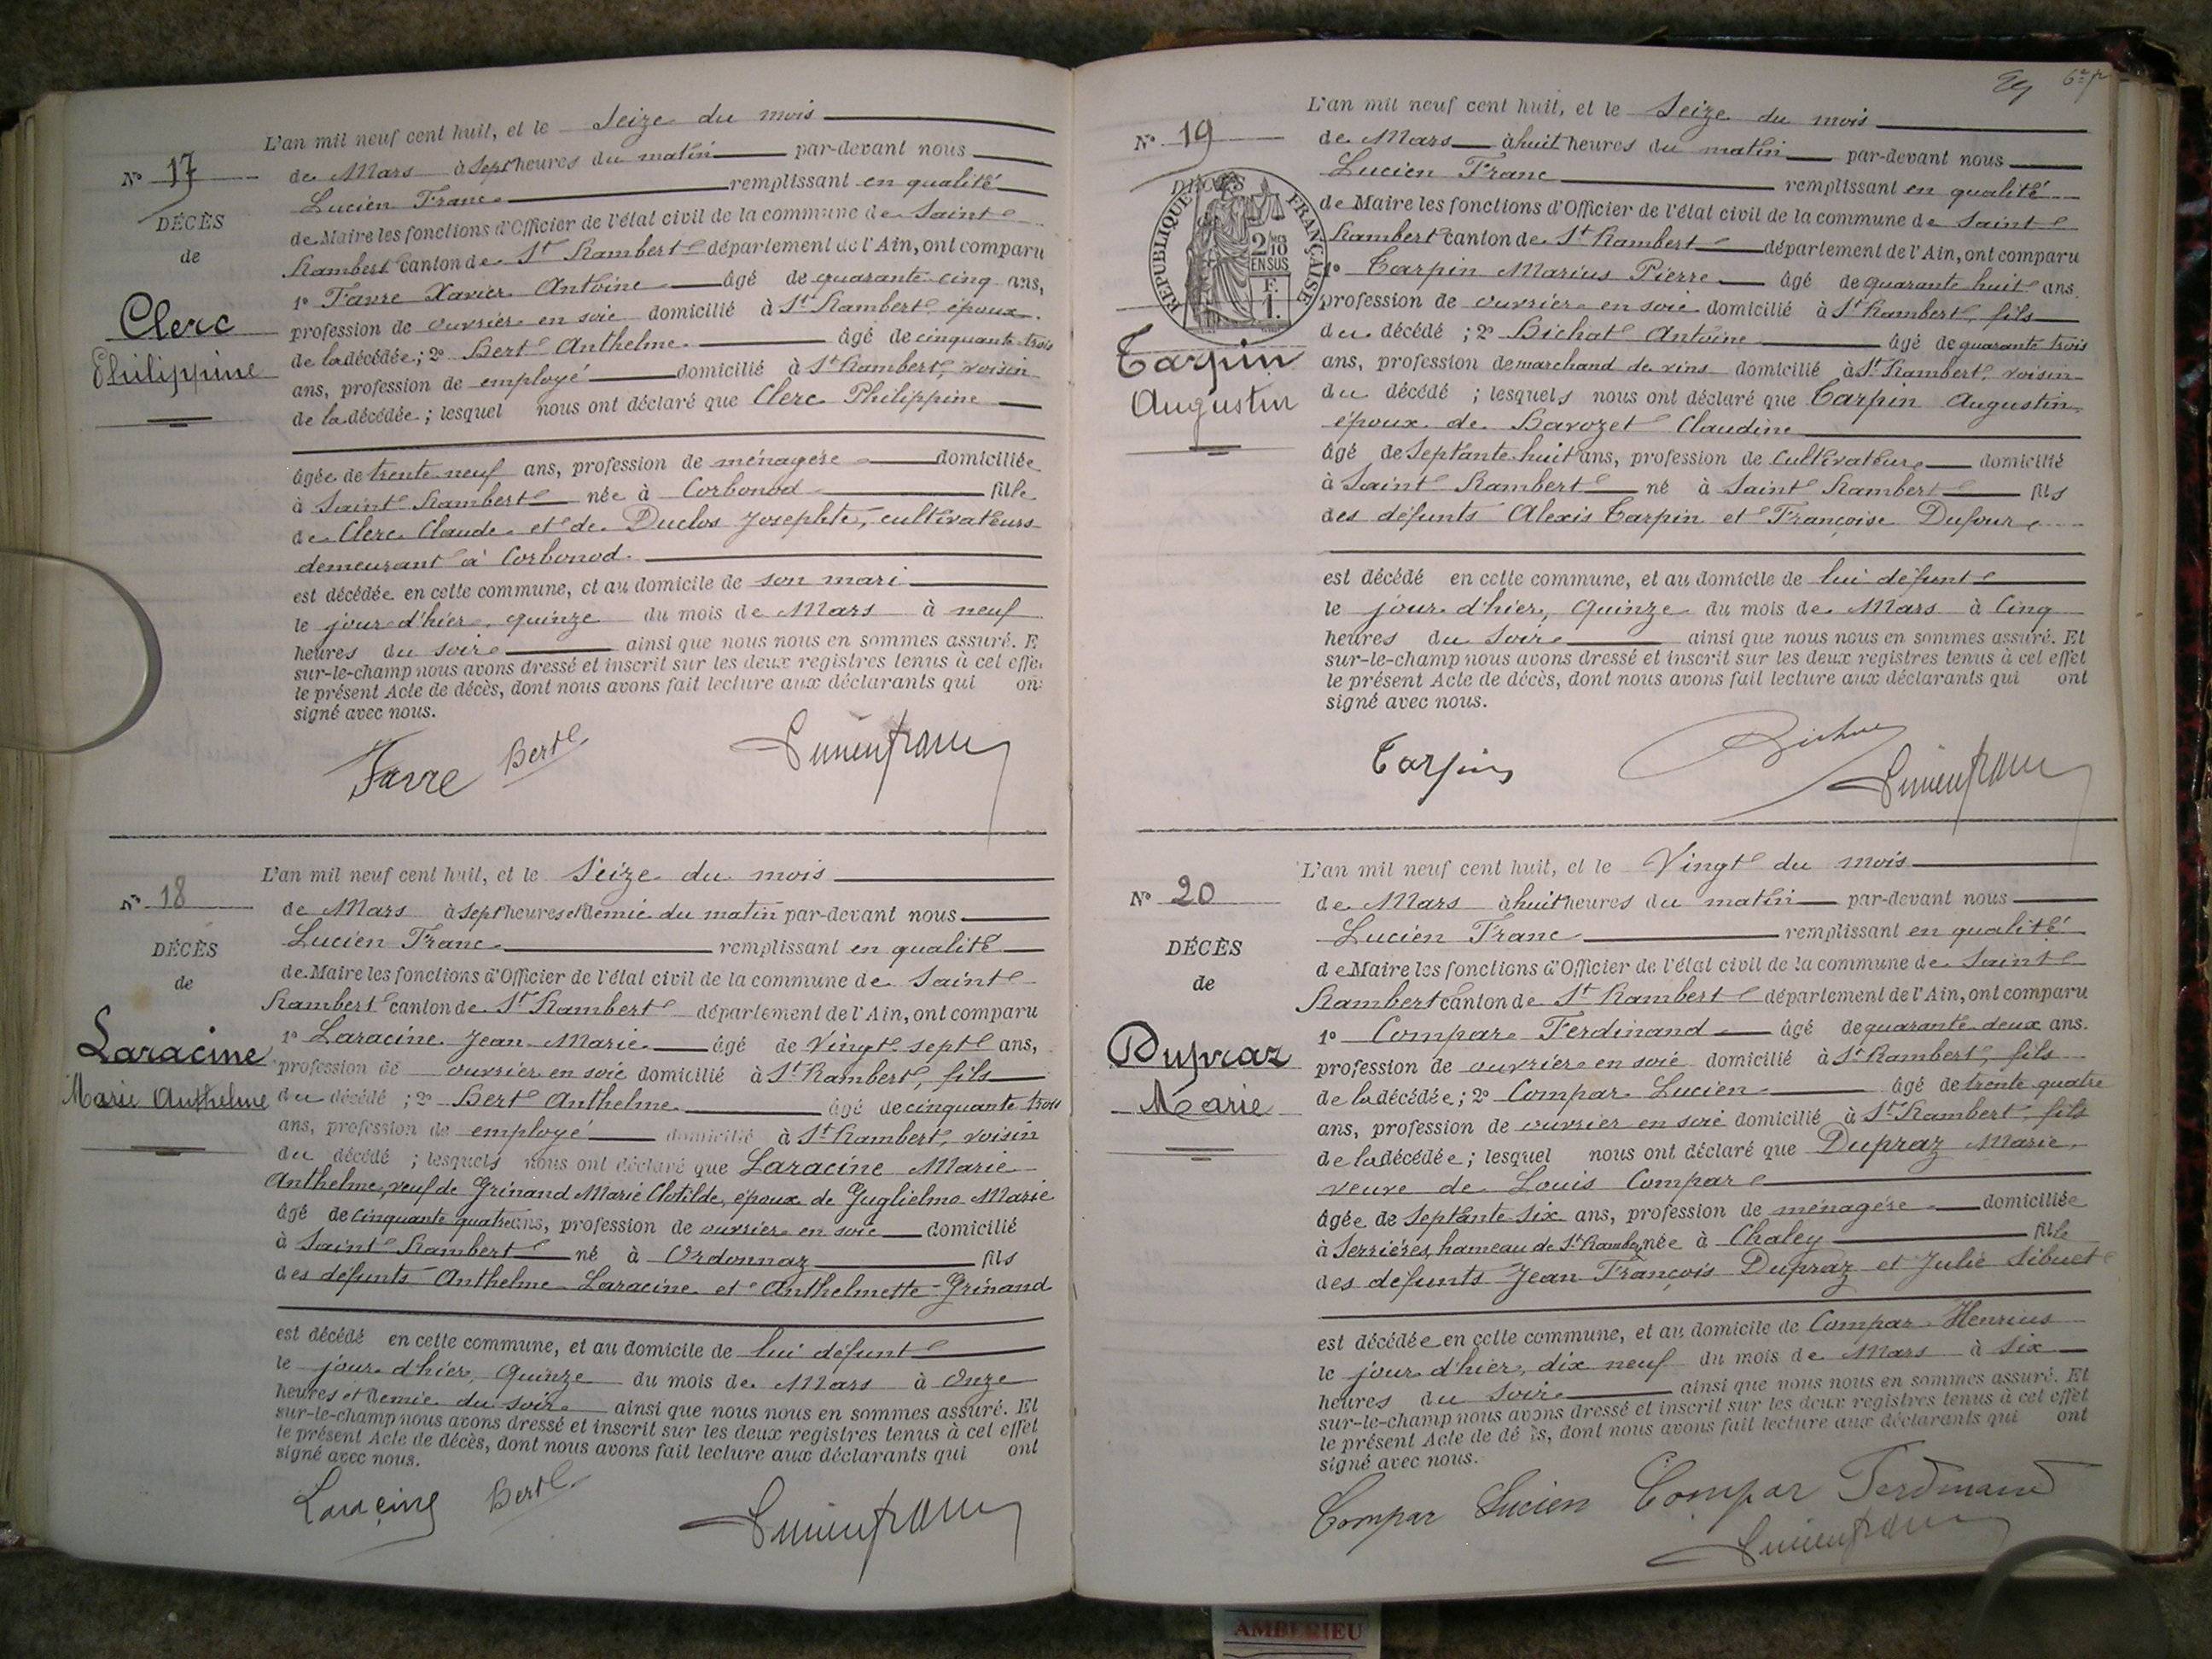 N° 17
DÉCÈS
de
Clerc
Philippine
L'an mil neuf cent huit, et le Seize du mois
de Mars à Sept heures du matin par-devant nous
Lucien Franc remplissant en qualité
de Maire les fonctions d'Officier de l'état civil de la commune de Saint
Rambert canton de St Rambert département de l'Ain, ont comparu
1° Favre Xavier Antoine âgé de quarante cinq ans,
profession de ouvrier en soie domicilié à St Rambert, époux
de la décédée; 2° Bert Anthelme âgé de cinquante trois
ans, profession de employé domicilié à St Rambert, voisin
de la décédée; lesquel nous ont déclaré que Clerc Philippine
âgée de trente neuf ans, profession de ménagère domiciliée
à Saint Rambert née à Corbonod fille
de Clerc Claude et de Duclos Josephte, cultivateurs
demeurant à Corbonod.
est décédée en cette commune, et au domicile de son mari
le jour d'hier, quinze du mois de Mars à neuf
heures du soir ainsi que nous nous en sommes assuré. E
sur-le-champ nous avons dressé et inscrit sur les deux registres tenus à cet effe
le présent Acte de décès, dont nous avons fait lecture aux déclarants qui on
signé avec nous.
Favre Bert Lucien franc
N° 18
DÉCÈS
de
Laracine
Marie Anthelme
L'an mil neuf cent huit, et le Seize du mois
de Mars à sept heures et demie du matin par-devant nous
Lucien Franc remplissant en qualité
de Maire les fonctions d'Officier de l'état civil de la commune de Saint
Rambert canton de St Rambert département de l'Ain, ont comparu
1° Laracine Jean Marie âgé de Vingt sept ans,
profession de ouvrier en soie domicilié à St Rambert, fils
du décédé; 2° Bert Anthelme âgé de cinquante trois
ans, profession de employé domicilié à St Rambert, voisin
du décédé; lesquels nous ont déclaré que Laracine Marie
Anthelme, veuf de Grinand Marie Clotilde, époux de Guglielmo Marie
âgé de cinquante quatre ans, profession de ouvrier en soie domicilié
à Saint Rambert né à Ordonnaz fils
des défunts Anthelme Laracine et Anthelmette Grinand
est décédé en cette commune, et au domicile de lui défunt
le jour d'hier, Quinze du mois de Mars à Onze
heures et demie du soir ainsi que nous nous en sommes assuré. Et
sur-le-champ nous avons dressé et inscrit sur les deux registres tenus à cet effet
le présent Acte de décès, dont nous avons fait lecture aux déclarants qui ont
signé avec nous.
Laracine Bert Lucien franc
6e p
N° 19
DÉCÈS
RÉPUBLIQUE FRANÇAISE
2/10
EN SUS
F.
1.
Tarpin
Augustin
L'an mil neuf cent huit, et le Seize du mois
de Mars à huit heures du matin par-devant nous
Lucien Franc remplissant en qualité
de Maire les fonctions d'Officier de l'état civil de la commune de Saint
Rambert canton de St Rambert département de l'Ain, ont comparu
1° Tarpin Marius Pierre âgé de quarante huit ans
profession de ouvrier en soie domicilié à St Rambert, fils
du décédé; 2° Bichat Antoine âgé de quarante trois
ans, profession de marchand de vins domicilié à St Rambert, voisin
du décédé; lesquels nous ont déclaré que Tarpin Augustin,
époux de Barozet Claudine
âgé de Septante huit ans, profession de Cultivateur domicilié
à Saint Rambert né à Saint Rambert fils
des défunts Alexis Tarpin et Françoise Dufour
est décédé en cette commune, et au domicile de lui défunt
le jour d'hier, Quinze du mois de Mars à Cinq
heures du Soir ainsi que nous nous en sommes assuré. Et
sur-le-champ nous avons dressé et inscrit sur les deux registres tenus à cet effet
le présent Acte de décès, dont nous avons fait lecture aux déclarants qui ont
signé avec nous.
Tarpin Bichat Lucien franc
N° 20
DÉCÈS
de
Dupraz
Marie
L'an mil neuf cent huit, et le Vingt du mois
de Mars à huit heures du matin par-devant nous
Lucien Franc remplissant en qualité
de Maire les fonctions d'Officier de l'état civil de la commune de Saint
Rambert canton de St Rambert département de l'Ain, ont comparu
1° Compar Ferdinand âgé de quarante deux ans.
profession de ouvrier en soie domicilié à St Rambert, fils
de la décédée; 2° Compar Lucien âgé de trente quatre
ans, profession de ouvrier en soie domicilié à St Rambert, fils
de la décédée; lesquel nous ont déclaré que Dupraz Marie,
veuve de Louis Compar
âgée de Septante Six ans, profession de ménagère domiciliée
à Serrières, hameau de St Rambert, née à Chaley fille
des défunts Jean François Dupraz et Julie Sibuet
est décédée en cette commune, et au domicile de Compar Henrius
le jour d'hier, dix neuf du mois de Mars à Six
heures du Soir ainsi que nous nous en sommes assuré. Et
sur-le-champ nous avons dressé et inscrit sur les deux registres tenus à cet effet
le présent Acte de décès, dont nous avons fait lecture aux déclarants qui ont
signé avec nous.
Compar Lucien Compar Ferdinand
Lucien franc
AMBERIEU